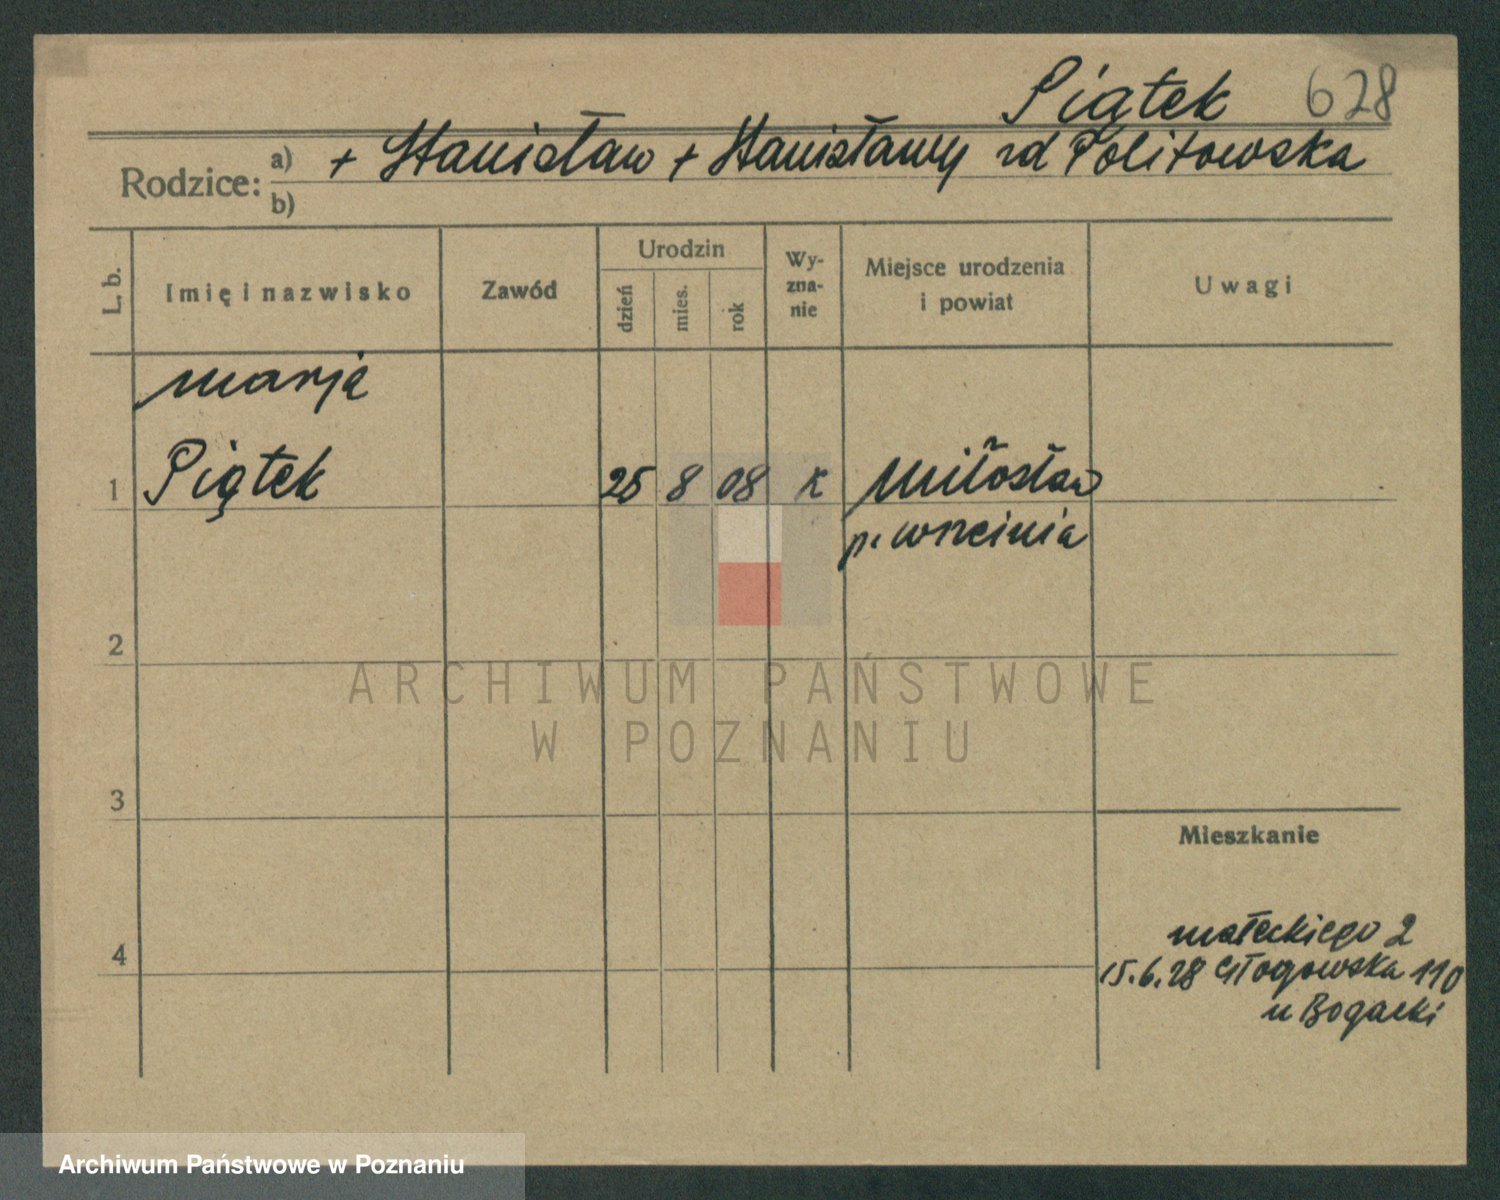 Piątek 628
Rodzice: a) + Stanisław + Stanisławy zd Politowska
b)
L. b.
Imię i nazwisko
Zawód
Urodzin
dzień
mies.
rok
Wy-
zna-
nie
Miejsce urodzenia
i powiat
Uwagi
Marja
1 Piątek 25 8 08 K Miłosław
p. Wrześnía
2
3
4
Mieszkanie
Małeckiego 2
15.6.28 Głogowska 110
u Bogacki
ARCHIWUM PAŃSTWOWE
W POZNANIU
Archiwum Państwowe w Poznaniu